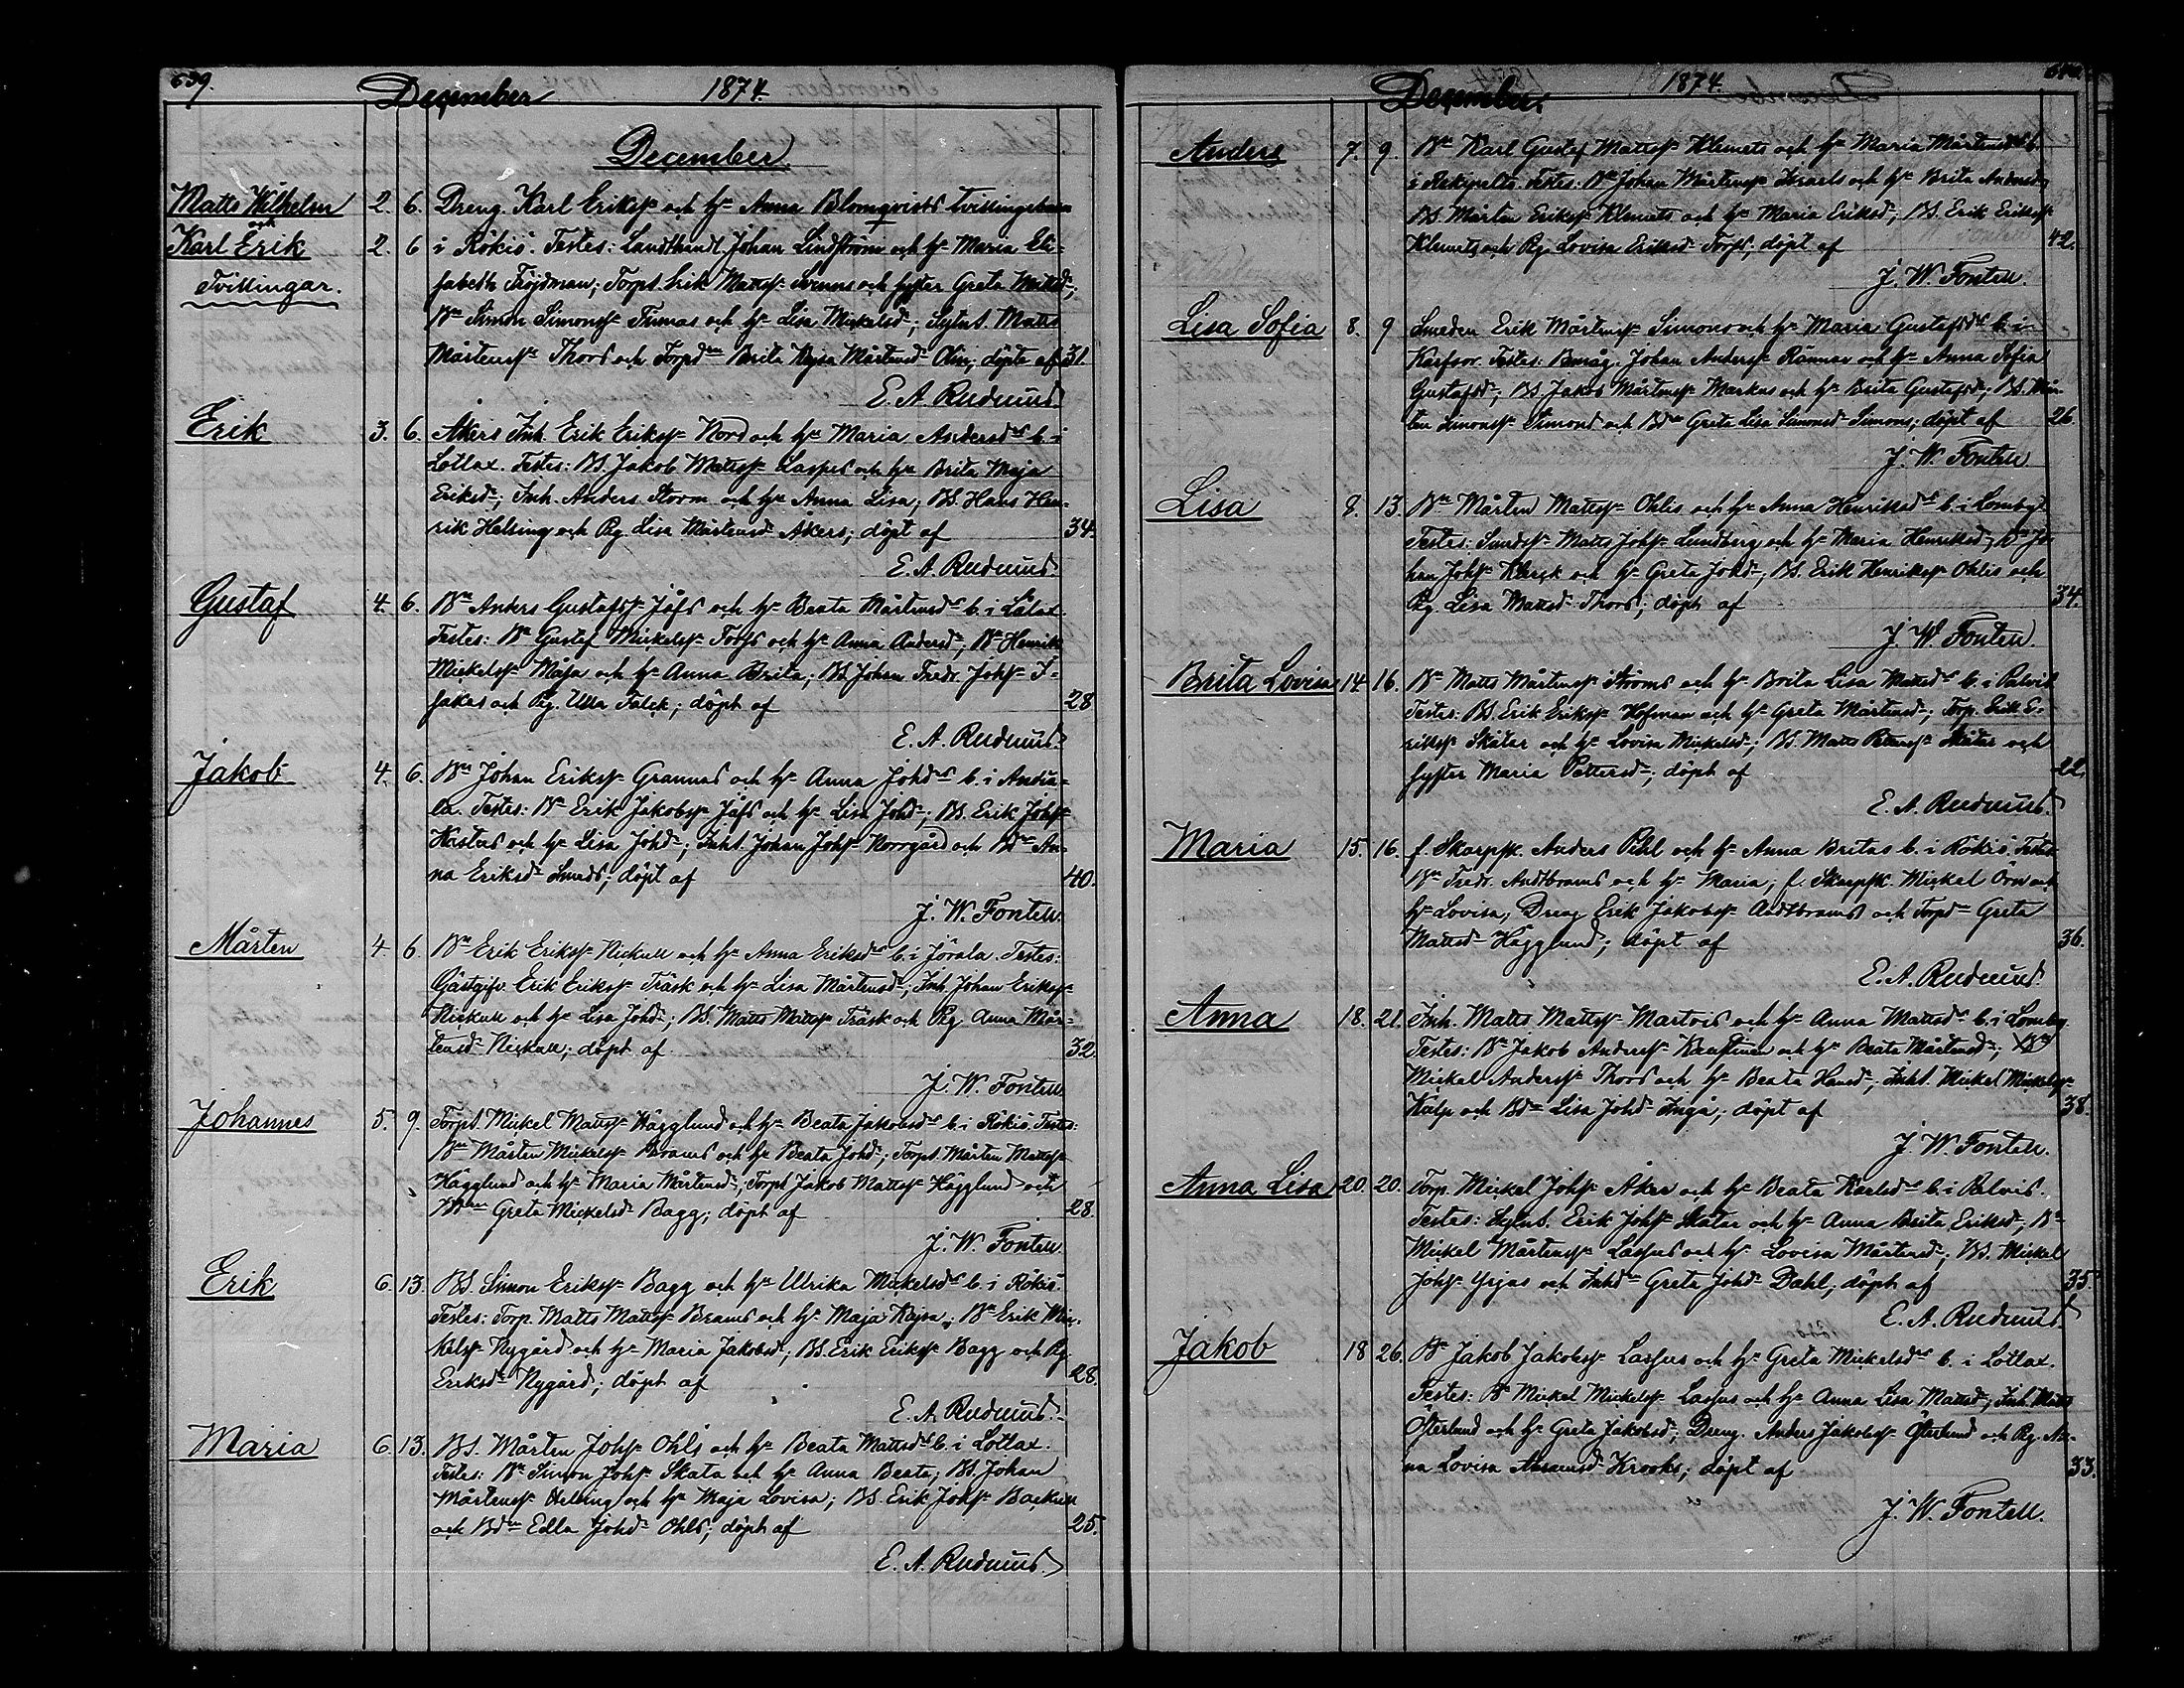 639.
December 1874.
December.
Matts Wilhelm 2. 6. Dreng. Karl Erikss. och h. Anna Blomqvists tvillingebarn
och
Karl Erik 2. 6 i Rökiö. Testes: Landthandl. Johan Lindström och h. Maria Eli-
Tvillingar. sabeth Fröjdman; Torpt. Erik Mattss. och syster Greta Mattsd.;
Bn Simon Simonss. Tumas och h. Lisa Mickelsd.; Sytnt. Matts
Mårtenss. Thors och Torpdn Brita Kajsa Mårtensd. Olin; döpte af 31.
E. A. Rudnäs.
Erik 3. 6. Åkers Inh. Erik Erikss. Nord och h. Maria Andersds b. i
Lotlax. Testes: BS. Jakob Mattss. Lassus och h. Brita Maja
Eriksd.; Inh. Anders Storm och h. Anna Lisa; BS. Hans Hen-
rik Helsing och Pig. Lisa Mårtensd. Åkers; döpt af 34.
E. A. Rudnäs.
Gustaf 4. 6. Bn Anders Gustafss. Jåfs och h. Beata Mårtensds b. i Lålax.
Testes: Bn Gustaf Mickelss. Torss och h. Anna Andersd.; Bn Henrik
Mickelss. Måsa och h. Anna Brita; BS. Johan Fredr. Johss. I-
sakas och Pig. Ulla Falck; döpt af 28
E. A. Rudnäs.
Jakob 4. 6. Bn Johan Erikss. Grannas och h. Anna Johds b. i Andia-
la. Testes: Bn Erik Jakobss. Jåfs och h. Lisa Johd.; BS. Erik Johss.
Hästas och h. Lisa Johd.; Inht. Johan Johss. Norrgård och Bdn An-
na Eriksd. Smeds; döpt af 40.
J. W. Fontell.
Mårten 4. 6 Bn Erik Erikss. Nickull och h. Anna Eriksds b. i Jörala. Testes:
Gästgifv. Erik Erikss. Träsk och h. Lisa Mårtensd.; Inh. Johan Erikss.
Nickull och h. Lisa Johd.; BS. Matts Mattss. Träsk och Pig. Anna Mår-
tensd. Nickull; döpt af 32
J. W. Fontell
Johannes 5. 9. Torpt. Mickel Mattss. Hägglund och h. Beata Jakobsds b. i Rökiö. Testes:
Bn Mårten Mickelss. Brams och h. Beata Johd.; Torpt. Mårten Mattss.
Hägglund och h. Maria Mårtensd.; Torpt. Jakob Mattss. Hägglund och
Bdn Greta Mickelsd. Bagg; döpt af 28.
J. W. Fontell
Erik 6. 13. BS. Simon Erikss. Bagg och h. Ulrika Mickelsds b. i Rökiö.
Testes: Torp. Matts Mattss. Brams och h. Maja Kajsa; Bn Erik Mic-
kelss. Nygård och h. Maria Jakobsd.; BS. Erik Erikss. Bagg och Pig.
Eriksd. Nygård; döpt af 28.
E. A. Rudnäs.
Maria 6. 13. BS. Mårten Johss. Ohls och h. Beata Mattsds b. i Lotlax.
Testes: Bn Simon Johss. Skata och h. Anna Beata; BS. Johan
Mårtenss. Helsing och h. Maja Lovisa; BS. Erik Johss. Backull
och Bdn Edla Johd. Ohls; döpt af 25.
E. A. Rudnäs.
640.
December. 1874.
Anders 7. 9. Bn Karl Gustaf Mattss. Klemets och h. Maria Mårtensds b.
i Rekipelto. Testes: Bn Johan Mårtenss. Israels och h. Brita Andersd.;
BS. Mårten Erikss. Klemets och h. Maria Eriksd.; BS. Erik Erikss.
Klemets och Pig. Lovisa Eriksd. Torss; döpt af 42.
J. W. Fontell.
Lisa Sofia 8. 9 Smeden Erik Mårtenss. Simons och h. Maria Gustafsds b. i
Karfsor. Testes: Bmåg. Johan Anderss. Rännar och h. Anna Sofia
Gustafsd.; BS. Jakob Mårtenss. Markus och h. Brita Gustafsd.; BS. Mår-
ten Simonss. Simons och Bdn Greta Lisa Simonsd. Simons; döpt af 26.
J. W. Fontell
Lisa 8. 13. Bn Mårten Mattss. Ohlis och h. Anna Henriksds b. i Lomby.
Testes: Smedss. Matts Johss. Lundberg och h. Maria Henriksd.; Bn Jo-
han Johss. och h. Greta Johd.; BS. Erik Henrikss. Ohlis och
Pig. Lisa Mattsd. Thors; döpt af 34.
J. W. Fontell.
Brita Lovisa 14. 16. Bn Matts Mårtenss. Ströms och h. Brita Lisa Mattsds b. i Palvis
Testes: BS. Erik Erikss. Hofman och h. Greta Mårtensd.; Torp. Erik E-
rikss. Skatar och h. Lovisa Mickelsd.; BS. Matts Petterss. Skatar och
syster Maria Pettersd.; döpt af 22.
E. A. Rudnäs.
Maria 15. 16. f. Skarpsk. Anders Pihl och h. Anna Britas b. i Rökiö. Testes
Bn Fredr. Andtbrams och h. Maria; f. Skarpsk. Mickel Örn och
h. Lovisa; Dreng Erik Jakobss. Andtbrams och Torpdn Greta
Mattsd. Hägglund; döpt af 36.
E. A. Rudnäs.
Anna 18. 21. Inh. Matts Mattss. Martois och h. Anna Mattsds b. i Lomby
Testes: Bn Jakob Anderss. Kaustinen och h. Beata Mårtensd.; Bn
Mickel Anderss. Thors och h. Beata Hansd.; Inht. Mickel Mickelss.
Kalp och Bdn Lisa Johd. Ingå; döpt af 38.
J. W. Fontell.
Anna Lisa 20. 20. Torp. Mickel Johss. Åker och h. Beata Karlsds b. i Palvis.
Testes: Sytnt. Erik Johss. Skatar och h. Anna Brita Eriksd.; Bn
Mickel Mårtenss. Lassus och h. Lovisa Mårtensd.; BS. Mickel
Johss. Yrjas och Inhdn Greta Johd. Dahl; döpt af 35.
E. A. Rudnäs.
Jakob 18 26. Bn Jakob Jakobss. Lassus och h. Greta Mickelsds b. i Lotlax.
Testes: Bn Mickel Mickelss. Lassus och h. Anna Lisa Mattsd.; Inh. Matts
Österlund och h. Greta Jakobsd.; Dreng. Anders Jakobss. Österlund och Pig. An-
na Lovisa Abramsd. Krooks; döpt af 33.
J. W. Fontell.